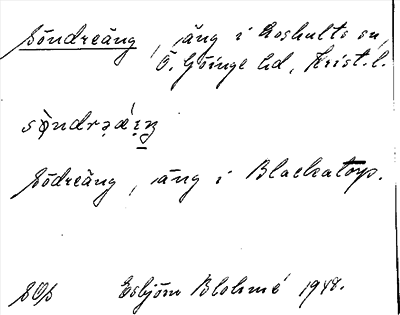 Söndreäng, äng i Loshults sn,
Ö. Göinge hd, Krist. l.
Södreäng, äng i Blackatorp.
Esbjörn Blohmé 1948.